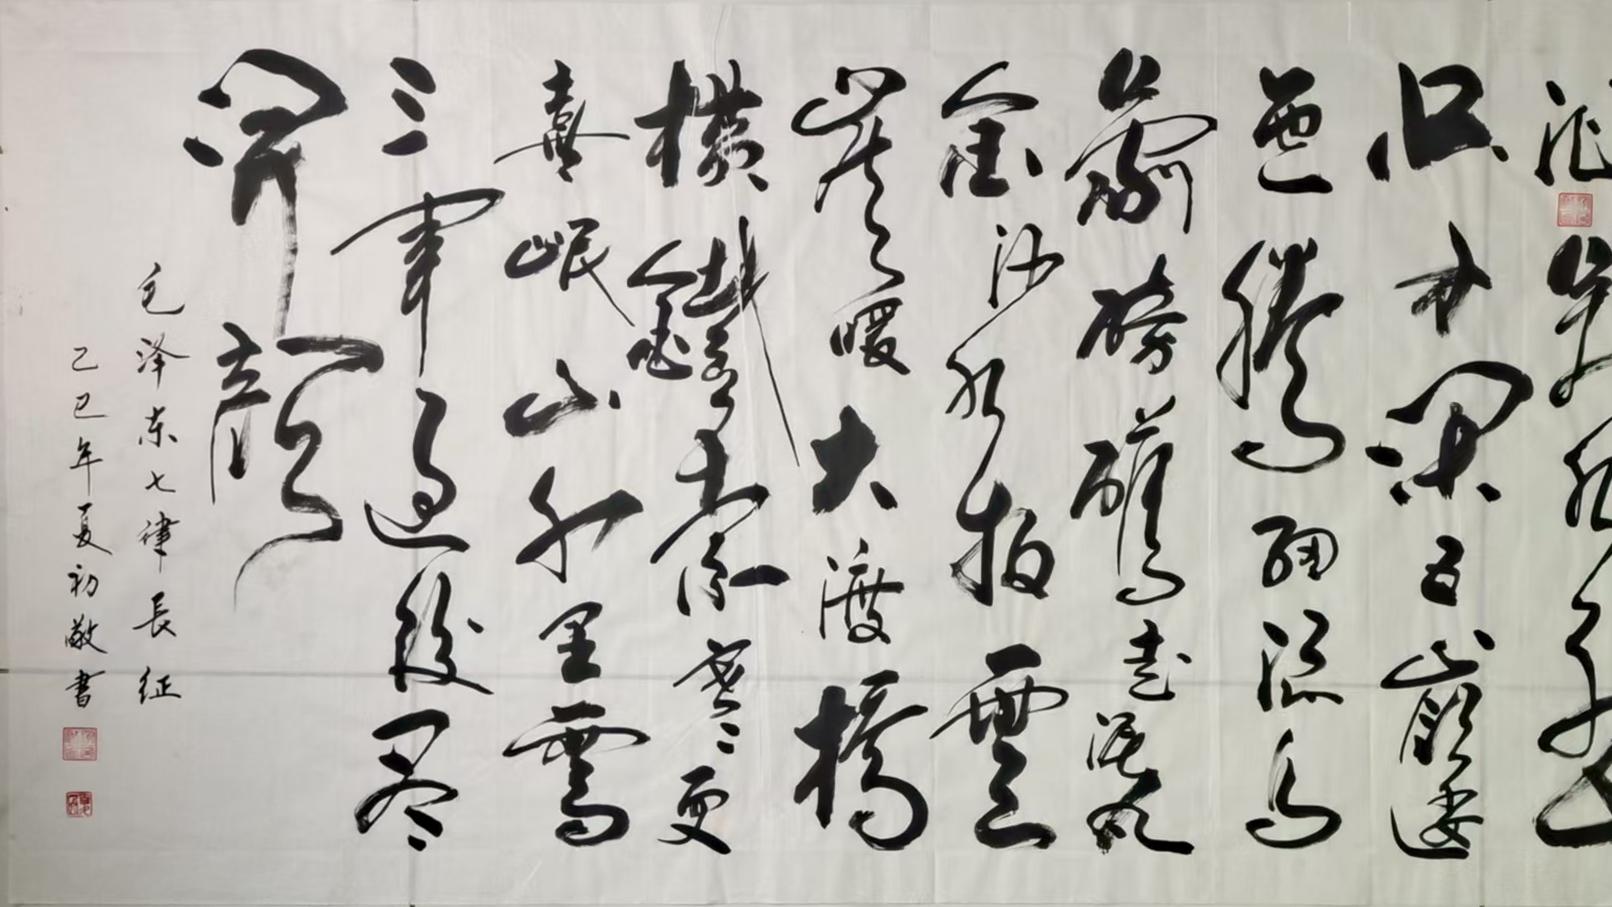 只等闲五嶺逶
迤腾细浪乌
蒙磅礴走泥丸
金沙水拍雲
崖暖大渡橋
横鐵索寒更
喜岷山千里雪
三軍過後尽
開顏
毛泽东七律長征
乙巳年夏初敬書